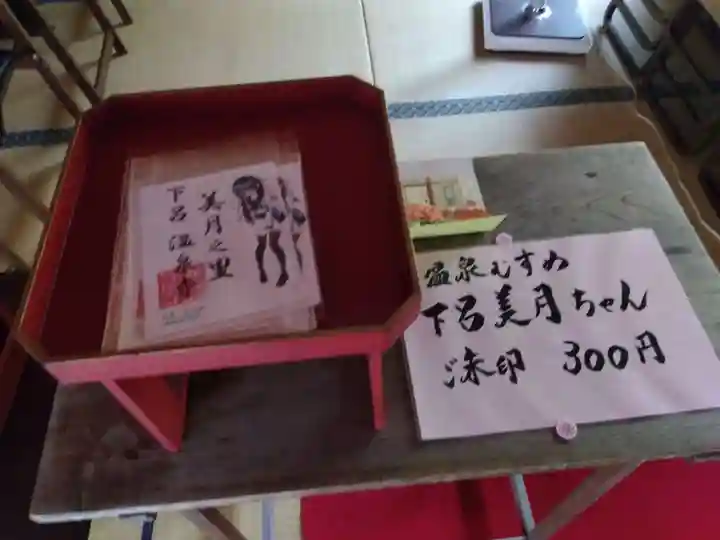 美月之里
下呂温泉寺
温泉むすめ
下呂美月ちゃん
ご朱印 300円